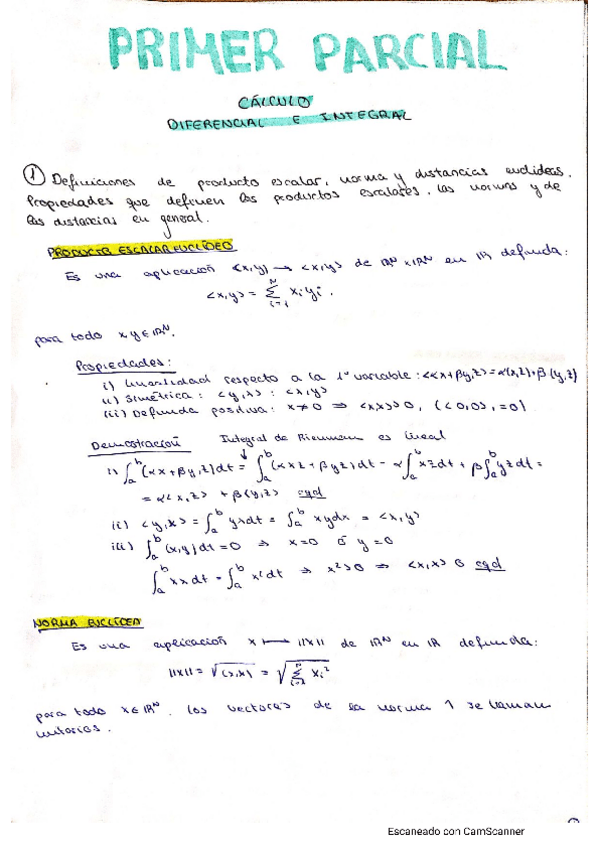 PRIMER PARCIAL
CÁLCULO
DIFERENCIAL E INTEGRAL
① Definiciones de producto escalar, norma y distancias euclideas.
Propiedades que definen los productos escalares, las normas y de
las distancias en general.
PRODUCTO ESCALAR EUCLÍDEO
Es una aplicación <x,y> → <x,y> de ℝᴺ x ℝᴺ en ℝ definida:
<x,y> = Σᴺᵢ₌₁ xᵢyᵢ.
para todo x,y ∈ ℝᴺ.
Propiedades:
i) Linealidad respecto a la 1ª variable: <αx+βy,z> = α(x,z)+β(y,z)
ii) Simétrica: <y,x> : <x,y>
iii) Definida positiva: x≠0 ⇒ <x,x> > 0, (<0,0>, =0)
Demostración Integral de Riemann es lineal
i) ∫ₐᵇ (αx + βy, z) dt = ∫ₐᵇ (αxz + βyz) dt = α∫ₐᵇ xz dt + β∫ₐᵇ yz dt =
= α<x,z> + β(y,z) cqd
ii) <y,x> = ∫ₐᵇ yx dt = ∫ₐᵇ xy dx = <x,y>
iii) ∫ₐᵇ (x,y) dt = 0 ⇒ x=0 ó y=0
∫ₐᵇ xx dt = ∫ₐᵇ x² dt ⇒ x²>0 ⇒ <x,x> 0 cqd
NORMA EUCLÍDEA
Es una aplicación x ⟼ ||x|| de ℝᴺ en ℝ definida:
||x|| = √(x,x) = √Σᴺᵢ₌₁ xᵢ²
para todo x ∈ ℝᴺ. Los vectores de la norma 1 se llaman
unitarios.
Escaneado con CamScanner